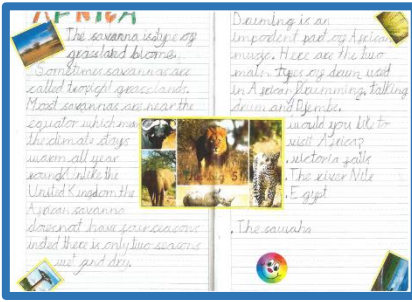 AFRICA
The savanna is type of
grassland biome.
Sometimes savannas are
called tropical grasslands.
Most savannas are near the
equator which means
the climate stays
warm all year
round. Unlike the
United Kingdom the
African savanna
does not have four seasons
insted there is only two seasons
wet and dry.
Druming is an
important part of African
music. Here are the two
main types of drum used
in African Drumming, talking
drum and Djembe.
would you like to
visit Africa?
. victoria falls
. The river Nile
. Egypt
. The